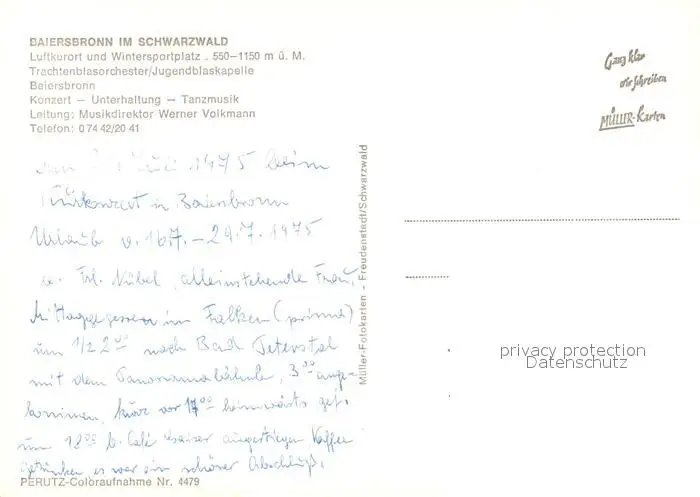 BAIERSBRONN IM SCHWARZWALD
Luftkurort und Wintersportplatz . 550–1150 m ü. M.
Trachtenblasorchester/Jugendblaskapelle
Baiersbronn
Konzert – Unterhaltung – Tanzmusik
Leitung: Musikdirektor Werner Volkmann
Telefon: 0 74 42/20 41
Juli 1975 beim
Kurkonzert in Baiersbronn
Urlaub v. 16.7. – 29.7. 1975
Frl. Nübel, alleinstehende Frau,
Mittaggegessen im Falken (prima)
um 1/2 2⁰⁰ nach Bad Peterstal
mit dem Panoramabähnle, 3⁰⁰ ange-
kommen, kurz vor 17⁰⁰ heimwärts gef.
um 18⁰⁰ b. Café ausgestiegen Kaffee
getrunken es war ein schöner Abschluß.
PERUTZ-Coloraufnahme Nr. 4479
Müller-Fotokarten - Freudenstadt/Schwarzwald
Ganz klar
wir schreiben
MÜLLER-Karten
privacy protection
Datenschutz